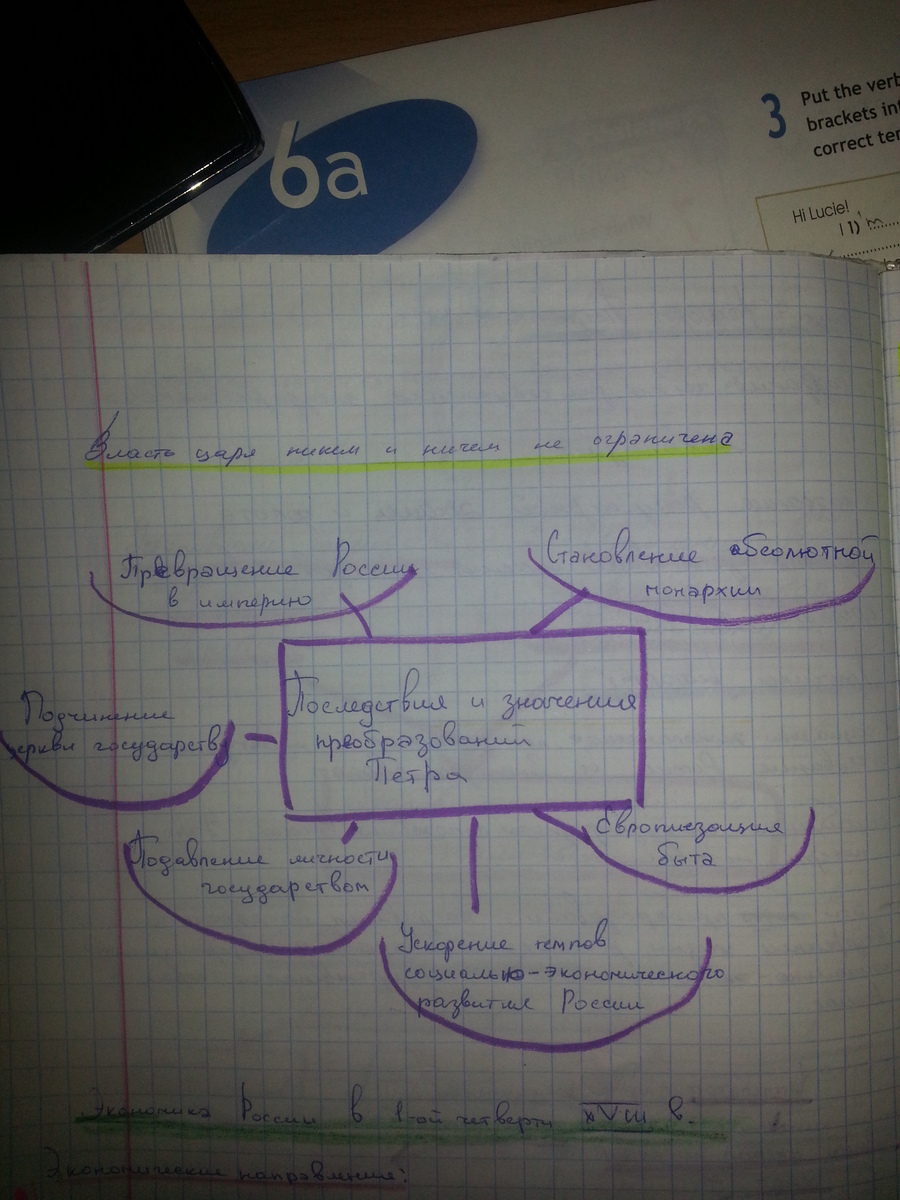 6a
3 Put the verb
brackets in
correct te
Hi Lucie!
1)'m
Власть царя никем и ничем не ограничена
Превращение России
в империю
Становление абсолютной
монархии
Подчинение
церкви государству
Последствия и значения
преобразований
Петра
Подавление личности
государством
Европиезация
быта
Ускорение темпов
социально-экономического
развития России
Экономика России в 1-ой четверти XVIII в.
Экономические направления: